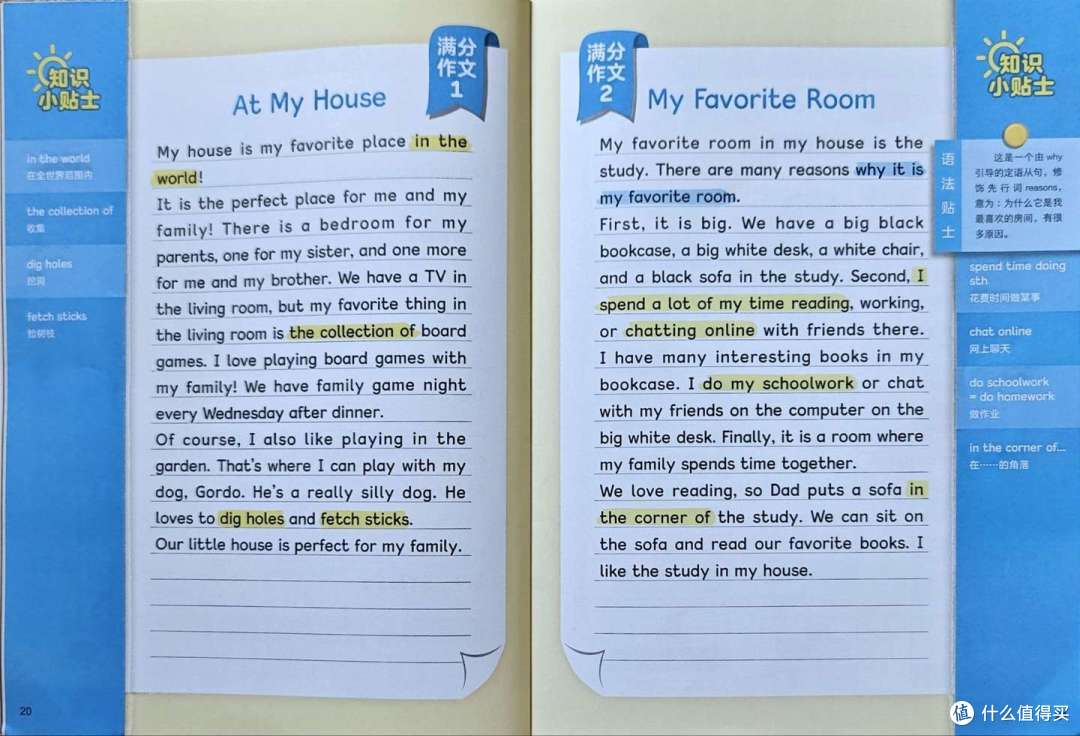 知识
小贴士
in the world
在全世界范围内
the collection of
收集
dig holes
挖洞
fetch sticks
捡树枝
20
满分
作文
1
At My House
My house is my favorite place in the
world!
It is the perfect place for me and my
family! There is a bedroom for my
parents, one for my sister, and one more
for me and my brother. We have a TV in
the living room, but my favorite thing in
the living room is the collection of board
games. I love playing board games with
my family! We have family game night
every Wednesday after dinner.
Of course, I also like playing in the
garden. That's where I can play with my
dog, Gordo. He's a really silly dog. He
loves to dig holes and fetch sticks.
Our little house is perfect for my family.
满分
作文
2
My Favorite Room
My favorite room in my house is the
study. There are many reasons why it is
my favorite room.
First, it is big. We have a big black
bookcase, a big white desk, a white chair,
and a black sofa in the study. Second, I
spend a lot of my time reading, working,
or chatting online with friends there.
I have many interesting books in my
bookcase. I do my schoolwork or chat
with my friends on the computer on the
big white desk. Finally, it is a room where
my family spends time together.
We love reading, so Dad puts a sofa in
the corner of the study. We can sit on
the sofa and read our favorite books. I
like the study in my house.
知识
小贴士
语法贴士
这是一个由 why
引导的定语从句，修
饰先行词 reasons，
意为：为什么它是我
最喜欢的房间，有很
多原因。
spend time doing
sth
花费时间做某事
chat online
网上聊天
do schoolwork
= do homework
做作业
in the corner of...
在……的角落
值 什么值得买